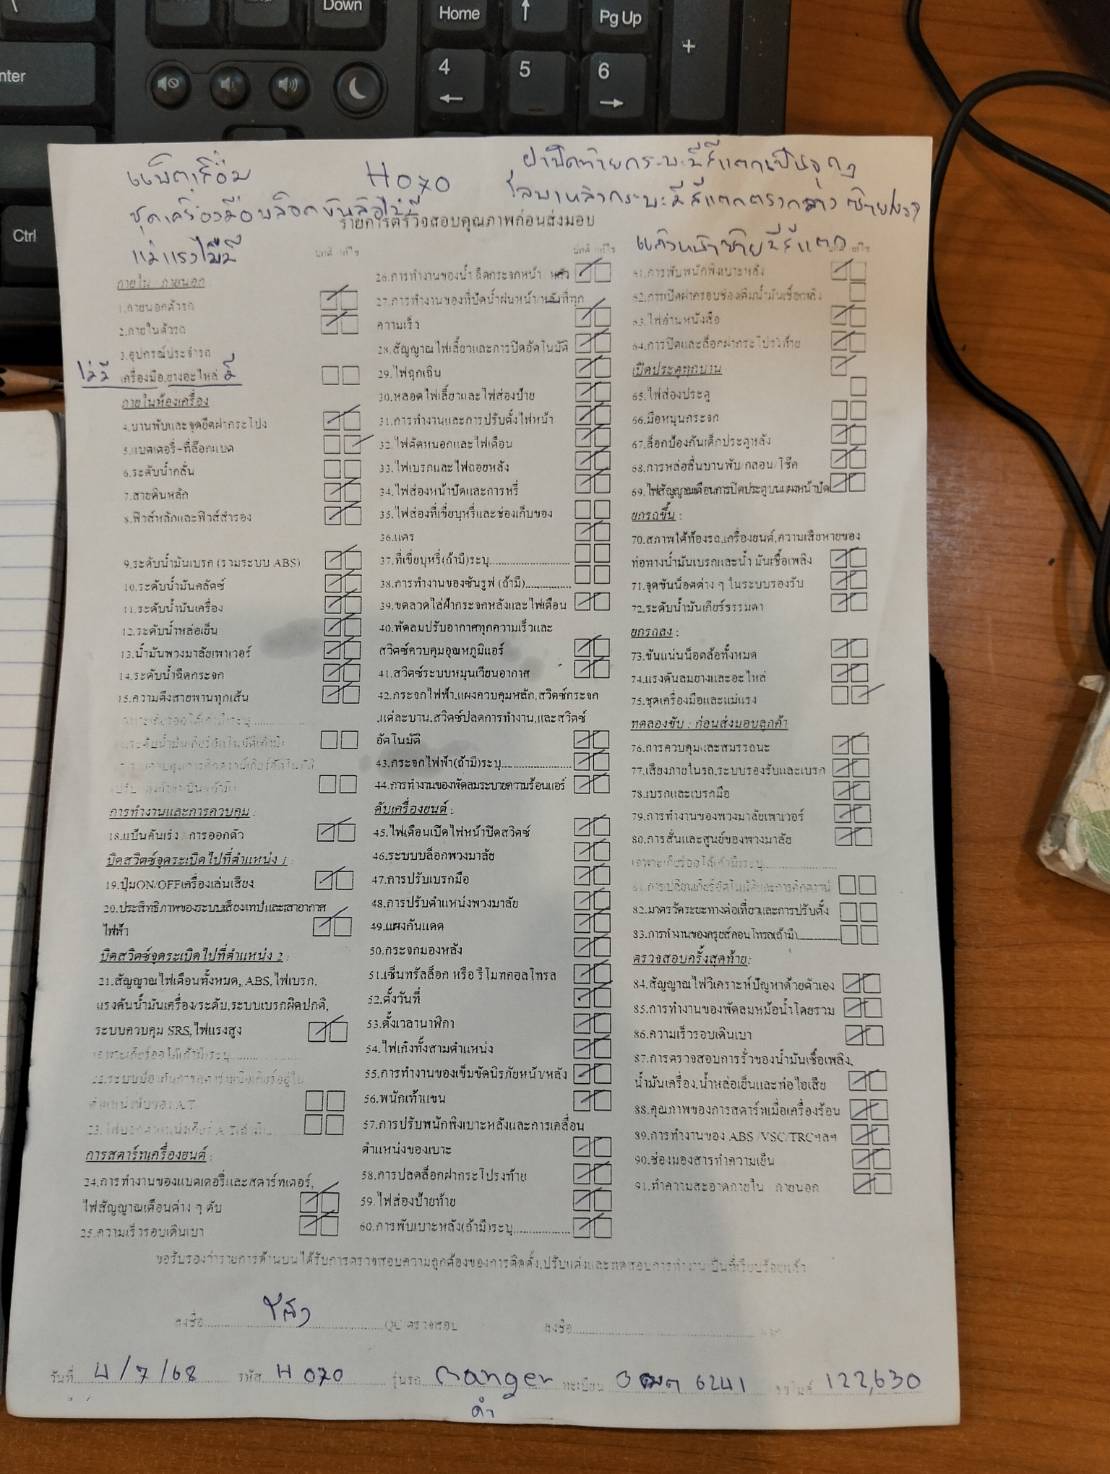 Down
Home
Pg Up
+
4
5
6
Ctrl
แบตเสื่อม
H070
ฝาปิดท้ายกระบะมีสีแตกเป็นจุดๆ
ชุดเครื่องมือบล็อกขันล้อไม่มี
รายการตรวจสอบคุณภาพก่อนส่งมอบ
แม่แรงไม่มี
แก้มหน้าซ้ายมีสีแตก
ภายใน ภายนอก
1.ภายนอกตัวรถ
2.ภายในตัวรถ
3.อุปกรณ์ประจำรถ
ไม่มี เครื่องมือ,ยางอะไหล่ มี
ภายในห้องเครื่อง
4.บานพับและจุดยึดฝากระโปง
5.แบตเตอรี่-ที่ล๊อกแบต
6.ระดับน้ำกลั่น
7.สายดินหลัก
8.ฟิวส์หลักและฟิวส์สำรอง
9.ระดับน้ำมันเบรก (รวมระบบ ABS)
10.ระดับน้ำมันคลัตซ์
11.ระดับน้ำมันเครื่อง
12.ระดับน้ำหล่อเย็น
13.น้ำมันพวงมาลัยเพาเวอร์
14.ระดับน้ำฉีดกระจก
15.ความตึงสายพานทุกเส้น
การทำงานและการควบคุม :
18.แป้นคันเร่ง / การออกตัว
บิดสวิตซ์จุดระเบิดไปที่ตำแหน่ง 1
19.ปุ่มON/OFFเครื่องเล่นเสียง
20.ประสิทธิภาพของระบบเสียงเทปและเสาอากาศ
ไฟฟ้า
บิดสวิตซ์จุดระเบิดไปที่ตำแหน่ง 2 :
21.สัญญาณไฟเตือนทั้งหมด, ABS, ไฟเบรก,
แรงดันน้ำมันเครื่อง/ระดับ,ระบบเบรกผิดปกติ,
ระบบควบคุม SRS, ไฟแรงสูง
การสตาร์ทเครื่องยนต์ :
24.การทำงานของแบตเตอรี่และสตาร์ทเตอร์,
ไฟสัญญาณเตือนต่าง ๆ ดับ
25.ความเร็วรอบเดินเบา
26.การทำงานของน้ำฉีดกระจกหน้า หลัง
27.การทำงานของที่ปัดน้ำฝนหน้า/หลังที่ทุก
ความเร็ว
28.สัญญาณไฟเลี้ยวและการปิดอัตโนมัติ
29.ไฟฉุกเฉิน
30.หลอดไฟเลี้ยวและไฟส่องป้าย
31.การทำงานและการปรับตั้งไฟหน้า
32.ไฟตัดหมอกและไฟเตือน
33.ไฟเบรกและไฟถอยหลัง
34.ไฟส่องหน้าปัดและการหรี่
35.ไฟส่องที่เขี่ยบุหรี่และช่องเก็บของ
36.แตร
37.ที่เขี่ยบุหรี่(ถ้ามี)ระบุ
38.การทำงานของซันรูฟ (ถ้ามี)
39.ขดลวดไล่ฝ้ากระจกหลังและไฟเตือน
40.พัดลมปรับอากาศทุกความเร็วและ
สวิตซ์ควบคุมอุณหภูมิแอร์
41.สวิตซ์ระบบหมุนเวียนอากาศ
42.กระจกไฟฟ้า,แผงควบคุมหลัก,สวิตซ์กระจก
แต่ละบาน,สวิตซ์ปลดการทำงาน,และสวิตซ์
อัตโนมัติ
43.กระจกไฟฟ้า(ถ้ามี)ระบุ
44.การทำงานของพัดลมระบายความร้อนแอร์
ดับเครื่องยนต์ :
45.ไฟเตือนเปิดไฟหน้าปิดสวิตซ์
46.ระบบบล็อกพวงมาลัย
47.การปรับเบรกมือ
48.การปรับตำแหน่งพวงมาลัย
49.แผงกันแดด
50.กระจกมองหลัง
51.เซ็นทรัลล็อก หรือ รีโมทคอลโทรล
52.ตั้งวันที่
53.ตั้งเวลานาฬิกา
54.ไฟเก๋งทั้งสามตำแหน่ง
55.การทำงานของเข็มขัดนิรภัยหน้า/หลัง
56.พนักเท้าแขน
57.การปรับพนักพิงเบาะหลังและการเคลื่อน
ตำแหน่งของเบาะ
58.การปลดล็อกฝากระโปรงท้าย
59.ไฟส่องป้ายท้าย
60.การพับเบาะหลัง(ถ้ามี)ระบุ
61.การพับพนักพิงเบาะหลัง
62.การเปิดฝาครอบช่องเติมน้ำมันเชื้อเพลิง
63.ไฟอ่านหนังสือ
64.การปิดและล็อกฝากระโปรงท้าย
เปิดประตูทุกบาน
65.ไฟส่องประตู
66.มือหมุนกระจก
67.ล็อกป้องกันเด็กประตูหลัง
68.การหล่อลื่นบานพับ/กลอน/โช๊ค
69.ไฟสัญญาณเตือนการปิดประตูบนแผงหน้าปัด
ยกรถขึ้น :
70.สภาพใต้ท้องรถ,เครื่องยนต์,ความเสียหายของ
ท่อทางน้ำมันเบรกและน้ำมันเชื้อเพลิง
71.จุดขันน็อตต่าง ๆ ในระบบรองรับ
72.ระดับน้ำมันเกียร์ธรรมดา
ยกรถลง :
73.ขันแน่นน็อตล้อทั้งหมด
74.แรงดันลมยางและอะไหล่
75.ชุดเครื่องมือและแม่แรง
ทดลองขับ : ก่อนส่งมอบลูกค้า
76.การควบคุมและสมรรถนะ
77.เสียงภายในรถ,ระบบรองรับและเบรก
78.เบรกและเบรกมือ
79.การทำงานของพวงมาลัยเพาเวอร์
80.การสั่นและศูนย์ของพวงมาลัย
82.มาตรวัดระยะทางต่อเที่ยวและการปรับตั้ง
83.การทำงานของครูยส์คอนโทรล(ถ้ามี)
ตรวจสอบครั้งสุดท้าย:
84.สัญญาณไฟวิเคราะห์ปัญหาด้วยตัวเอง
85.การทำงานของพัดลมหม้อน้ำโดยรวม
86.ความเร็วรอบเดินเบา
87.การตรวจสอบการรั่วของน้ำมันเชื้อเพลิง,
น้ำมันเครื่อง,น้ำหล่อเย็นและท่อไอเสีย
88.คุณภาพของการสตาร์ทเมื่อเครื่องร้อน
89.การทำงานของ ABS /VSC/TRCฯลฯ
90.ช่องมองสารทำความเย็น
91.ทำความสะอาดภายใน ภายนอก
ขอรับรองว่ารายการด้านบนได้รับการตรวจสอบความถูกต้องของการติดตั้ง,ปรับแต่งและทดสอบการทำงานเป็นที่เรียบร้อยแล้ว
ลงชื่อ QC ตรวจสอบ ลงชื่อ
วันที่ 4/7/68 รหัส H 070 รุ่นรถ ranger ทะเบียน 6241 122,630
ดำ